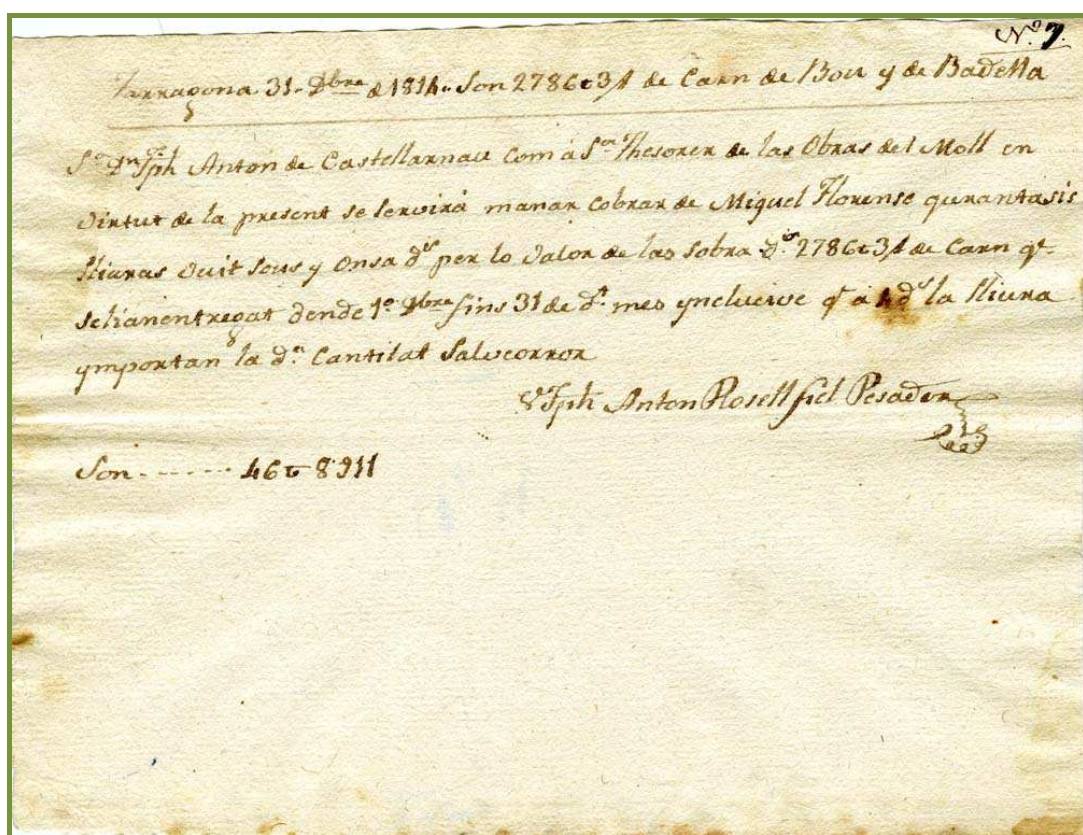 Nº 7.
Tarragona 31 Dbre de 1814 Son 2786 t 3/4 de Carn de Bou y de Badella
Sor Dn Jph Anton de Castellarnau Com á Sor Thesorer de las Obras del Moll en
virtut de la present se servirá manar Cobrar de Miquel Florense quarantasis
lliuras vuit sous y onsa ds per lo valor de las sobra 2786 t 3/4 de Carn qe
selianentregat dende 1º Dbre fins 31 de dt mes ynclucive qe á 4 ds la lliura
ymportan la da Cantitat Salvoerror
Jph Anton Rosell fiel Pesador
Son - - - - - - 46 t 8 s 11